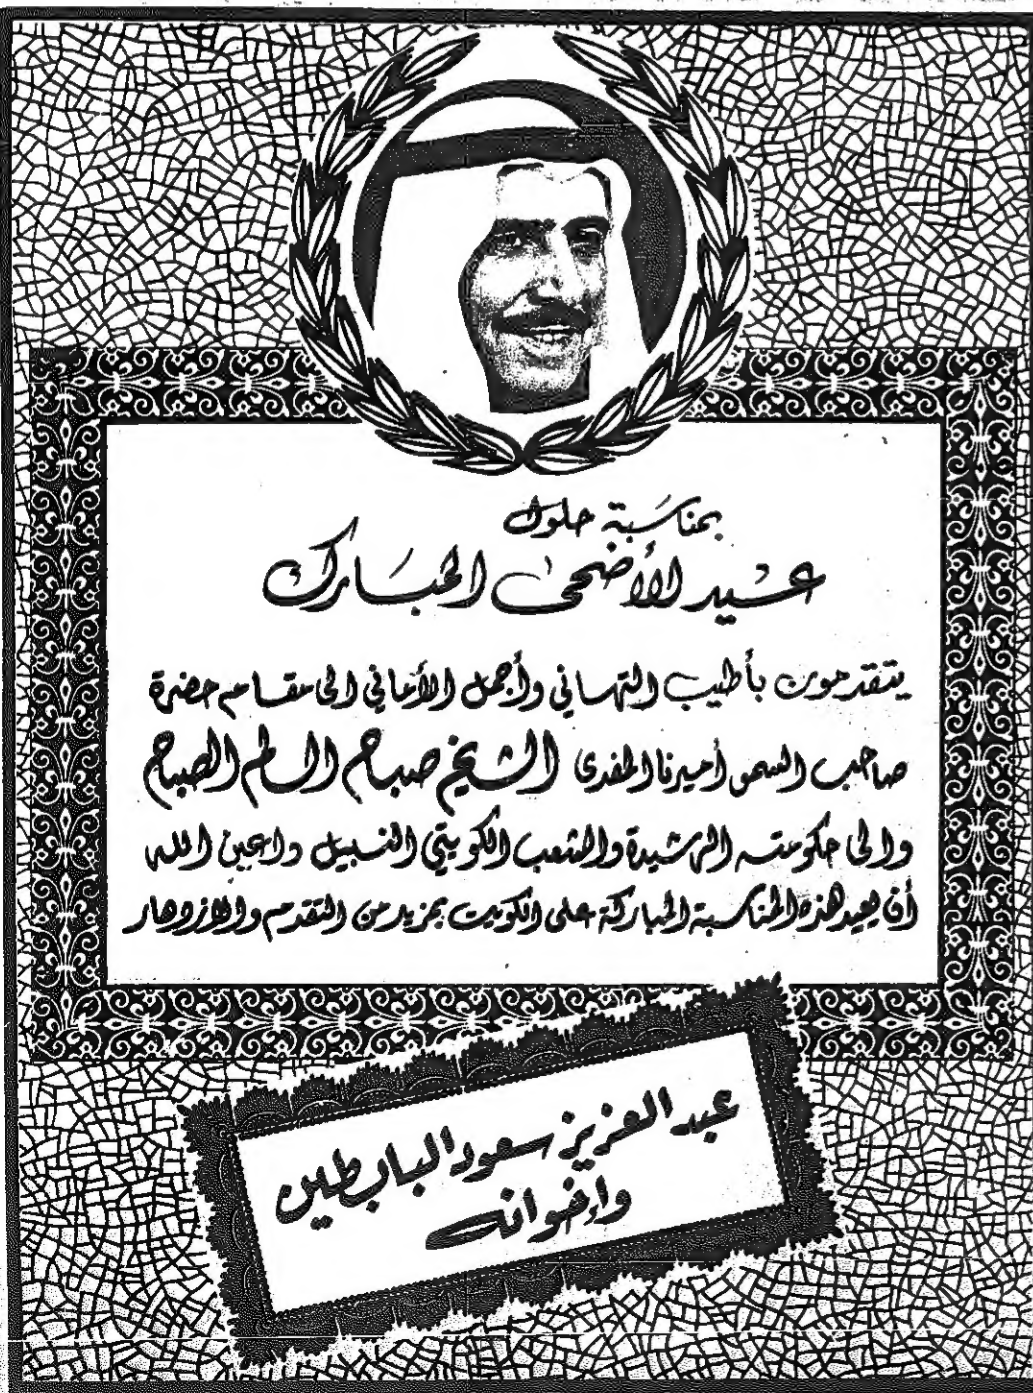 بمناسبة حلول
عيد الأضحى المبارك
يتقدمون بأطيب التهاني وأجمل الأماني الى مقام حضرة
صاحب السمو أميرنا المفدى الشيخ صباح السالم الصباح
والى حكومته الرشيدة والشعب الكويتي النبيل داعين الله
أن يعيد هذه المناسبة المباركة على الكويت بمزيد من التقدم والازدهار
عبد العزيز سعود البابطين
وإخوانه